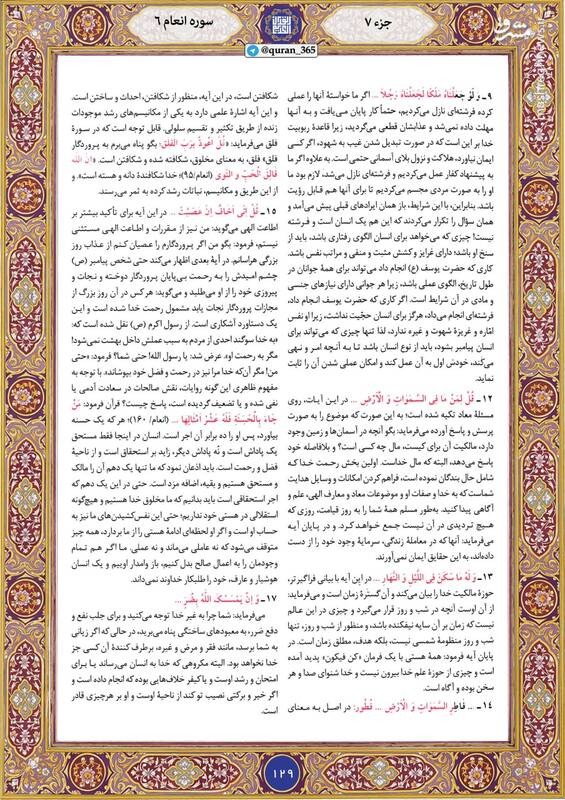 جزء ۷
سوره انعام ۶
@quran_365
مشرق
۹ـ وَ لَوْ جَعَلْنَاهُ مَلَكًا لَجَعَلْنَاهُ رَجُلًا ... اگر ما خواستهٔ آنها را عملی
کرده فرشته‌ای نازل می‌کردیم، حتماً کار پایان می‌یافت و به آنها
مهلت داده نمی‌شد و عذابشان قطعی می‌گردید، زیرا قاعدهٔ ربوبیت
خدا بر این است که در صورت تبدیل شدن غیب به شهود، اگر کسی
ایمان نیاورد، هلاکت و نزول بلای آسمانی حتمی است. به علاوه اگر ما
به پیشنهاد کفار عمل می‌کردیم و فرشته‌ای نازل می‌شد، لازم بود ما
او را به صورت مردی مجسم می‌کردیم تا برای آنها هم قابل رؤیت
باشد. بنابراین، با این شرایط، باز همان ایرادهای قبلی پیش می‌آمد و
همان سؤال را تکرار می‌کردند که این هم یک انسان است و فرشته
نیست! چیزی که می‌خواهد برای انسان الگوی رفتاری باشد، باید از
سنخ او باشد؛ دارای غرایز و کشش مثبت و منفی و مراتب نفس باشد.
کاری که حضرت یوسف (ع) انجام داد می‌تواند برای همهٔ جوانان در
طول تاریخ، الگوی عملی باشد، زیرا هر جوانی دارای نیازهای جنسی
و مادی در آن شرایط است. اگر کاری که حضرت یوسف انجام داد،
فرشته‌ای انجام می‌داد، هرگز برای انسان حجیّت نداشت، زیرا او نفس
امّاره و غریزهٔ شهوت و غیره ندارد، لذا تنها چیزی که می‌تواند برای
انسان پیامبر بشود، باید از نوع انسان باشد تا به آنچه امر و نهی
می‌کند، خودش اول به آن عمل کند و امکان عملی شدن آن را ثابت
نماید.
۱۲ـ قُل لِّمَنْ مَا فِی السَّمَوَاتِ وَ الْأَرْضِ ... در این آیات، روی
مسئلهٔ معاد تکیه شده است؛ به این صورت که موضوع را به صورت
پرسش و پاسخ آورده می‌فرماید: بگو آنچه در آسمان‌ها و زمین وجود
دارد، مالکیت آن برای کیست، مال چه کسی است؟ و بلافاصله خود
پاسخ می‌دهد، البته که مال خداست. اولین بخش رحمت خدا که
شامل حال بندگان نموده است، فراهم کردن امکانات و وسایل هدایت
شماست که به خدا و صفات او و موضوعات معاد و معارف الهی، علم و
آگاهی پیدا کنید. به‌طور مسلم همهٔ شما را به روز قیامت، روزی که
هیچ تردیدی در آن نیست جمع خواهد کرد. و در پایان آیه
می‌فرماید: آنها که در معاملهٔ زندگی، سرمایهٔ وجود خود را از دست
داده‌اند، به این حقایق ایمان نمی‌آورند.
۱۳ـ وَ لَهُ مَا سَكَنَ فِی اللَّیْلِ وَ النَّهَارِ ... در این آیه با بیانی فراگیرتر،
حوزهٔ مالکیت خدا را بیان می‌کند و آن گسترهٔ زمان است و می‌فرماید:
از آن اوست آنچه در شب و روز قرار می‌گیرد و چیزی در این عالم
نیست که زمان بر آن سایه نیفکنده باشد، و منظور از شب و روز، تنها
شب و روز منظومهٔ شمسی نیست، بلکه هدف، مطلق زمان است. در
پایان آیه فرمود: همهٔ هستی با یک فرمان «کن فیکون» پدید آمده
است و چیزی از حوزهٔ علم خدا بیرون نیست و خدا شنوای صدا و هر
سخن بوده و آگاه است.
۱۴ـ ... فَاطِرِ السَّمَوَاتِ وَ الْأَرْضِ ... فُطُور: در اصل به معنای
شکافتن است، در این آیه، منظور از شکافتن، احداث و ساختن است.
و این آیه اشارهٔ علمی دارد به یکی از مکانیسم‌های رشد موجودات
زنده از طریق تکثیر و تقسیم سلولی. قابل توجه است که در سورهٔ
فلق می‌فرماید: «قُلْ أَعُوذُ بِرَبِّ الْفَلَقِ: بگو پناه می‌برم به پروردگار
فلق» فلق، به معنای مخلوق، شکافته شده و شکافتن است. «إِنَّ اللهَ
فَالِقُ الْحَبِّ وَ النَّوَی (انعام/۹۵): خدا شکافندهٔ دانه و هسته است». و
از این طریق و مکانیسم، نباتات رشد کرده به ثمر می‌رسند.
۱۵ـ قُلْ إِنِّی أَخَافُ إِنْ عَصَیْتُ ... در این آیه برای تأکید بیشتر بر
اطاعت الهی می‌گوید: من نیز از مقررات و اطاعت الهی مستثنی
نیستم، فرمود: بگو من اگر پروردگارم را عصیان کنم از عذاب روز
بزرگی هراسانم. در آیهٔ بعدی اظهار می‌کند حتی شخص پیامبر (ص)
چشم امیدش را به رحمت بی‌پایان پروردگار دوخته و نجات و
پیروزی خود را از او می‌طلبد و می‌گوید: هر کس در آن روز بزرگ از
مجازات پروردگار نجات یابد مشمول رحمت خدا شده است و این
یک دستاورد آشکاری است. از رسول اکرم (ص) نقل شده است که:
«به خدا سوگند احدی از مردم به سبب عملش داخل بهشت نمی‌شود!
مگر به رحمت او». عرض شد: یا رسول الله! حتی شما؟ فرمود: «حتی
من! مگر آن‌که خدا مرا نیز در رحمت و فضل خود بپوشاند». با توجه به
مفهوم ظاهری این گونه روایات، نقش صالحات در سعادت آدمی یا
نفی شده و یا تضعیف گردیده است، پاسخ چیست؟ قرآن فرمود: مَنْ
جَاءَ بِالْحَسَنَةِ فَلَهُ عَشْرُ أَمْثَالِهَا ... (انعام/۱۶۰)؛ هر که یک حسنه
بیاورد، پس او را ده برابر آن اجر است. انسان در اینجا فقط مستحق
یک پاداش است و نُه پاداش دیگر، زاید بر استحقاق است و از ناحیهٔ
فضل و رحمت است. باید اذعان نمود که ما تنها یک دهم آن را مالک
و مستحق هستیم و بقیه، اضافه مزد است. حتی در این یک دهم که
اجر استحقاقی است باید بدانیم که ما مخلوق خدا هستیم و هیچ‌گونه
استقلالی در هستی خود نداریم؛ حتی این نفس‌کشیدن‌های ما نیز به
حساب او است و اگر او لحظه‌ای ادامهٔ هستی را از ما بردارد، همه چیز
متوقف می‌شود که نه عاملی می‌ماند و نه عملی. ما اگر هم تمام
وجودمان را به اعمال صالح بدل کنیم، باز وامدار اوییم و یک انسان
هوشیار و عارف، خود را طلبکار خداوند نمی‌داند.
۱۷ـ وَ إِنْ یَمْسَسْكَ اللَّهُ بِضُرٍّ ...
می‌فرماید: شما چرا به غیر خدا توجه می‌کنید و برای جلب نفع و
دفع ضرر، به معبودهای ساختگی پناه می‌برید، در حالی که اگر زیانی
به شما برسد، مانند فقر و مرض و غیره، برطرف کنندهٔ آن کسی جز
خدا نخواهد بود. البته مکروهی که خدا به انسان می‌رساند یا برای
امتحان و رشد اوست و یا کیفر خلاف‌هایی بوده که انجام داده است و
اگر خیر و برکتی نصیب تو کند از ناحیهٔ اوست و او بر هرچیزی قادر
است.
۱۲۹